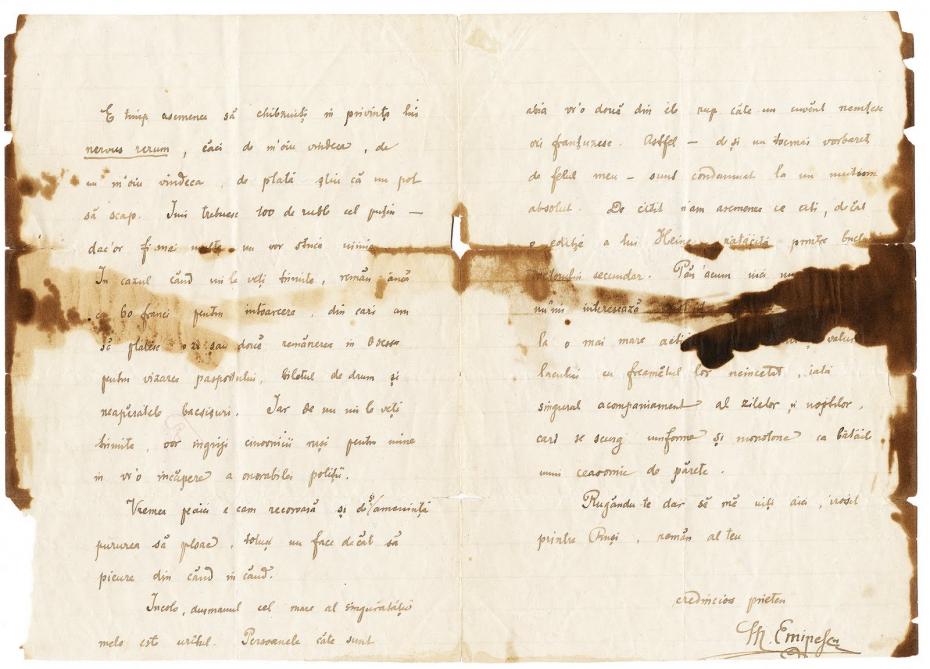 E timp asemenea să chibzuiți în privința lui
nervus rerum, căci de m'oiu vindeca, de
nu m'oiu vindeca, de plată știu că nu pot
să scap. Îmi trebuesc 100 de ruble cel puțin —
dac'or fi mai multe nu vor strica nimic
În cazul când mi le veți trimite, rămân
60 franci pentru întoarcere, din cari am
să plătesc o zi sau două rămânerea în Odessa
pentru vizarea pasportului, biletul de drum și
neapăratele bacșișuri. Iar de nu mi le veți
trimite, vor îngriji cinovnicii ruși pentru mine
în vr'o încăpere a onorabilei poliții.
Vremea peaici e cam recoroasă și deși amenință
pururea să ploae, totuși nu face decât să
picure din când în când.
Încolo, dușmanul cel mare al singurătății
mele este urîtul. Persoanele câte sunt
abia vr'o două din ele rup câte un cuvânt nemțesc
ori franțuzesc. Astfel — deși nu tocmai vorbareț
de felul meu — sunt condamnat la un mutism
absolut. De citit n'am asemenea ce citi, decât
o ediție a lui Heine rătăcită printre
secundar. Păn'acum nici nu
nu'mi interesează
la o mai mare
lacului cu freamătul lor neîncetat, iată
singurul acompaniament al zilelor și nopților,
cari se scurg uniforme și monotone ca bătăile
unui ceasornic de părete.
Rugându-te dar să nu mă uiți aici, izolat
printre Ruși, rămân al teu
credincios prieten
M. Eminescu